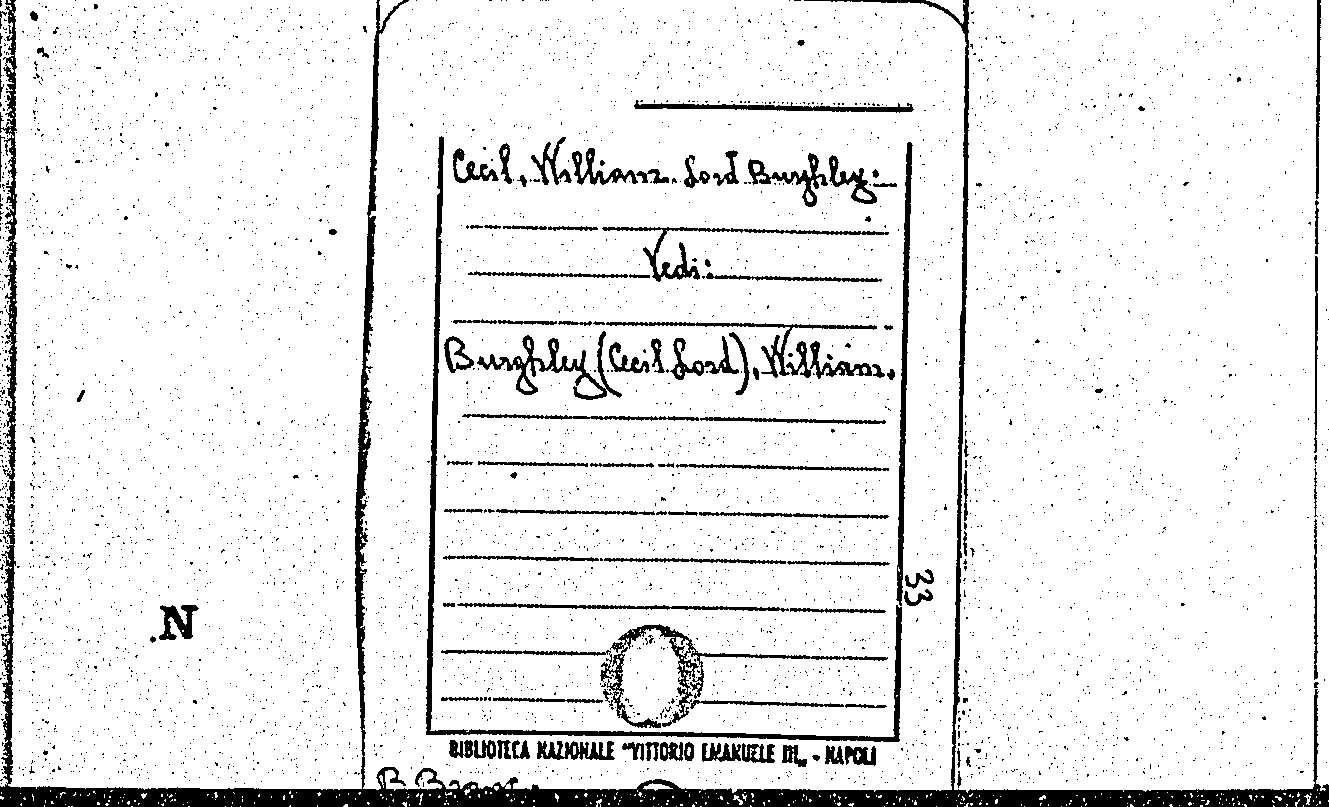 Cecil, William. Lord Burghley:
Vedi:
Burghley (Cecil Lord), William.
33
.N
BIBLIOTECA NAZIONALE "VITTORIO EMANUELE III„ - NAPOLI